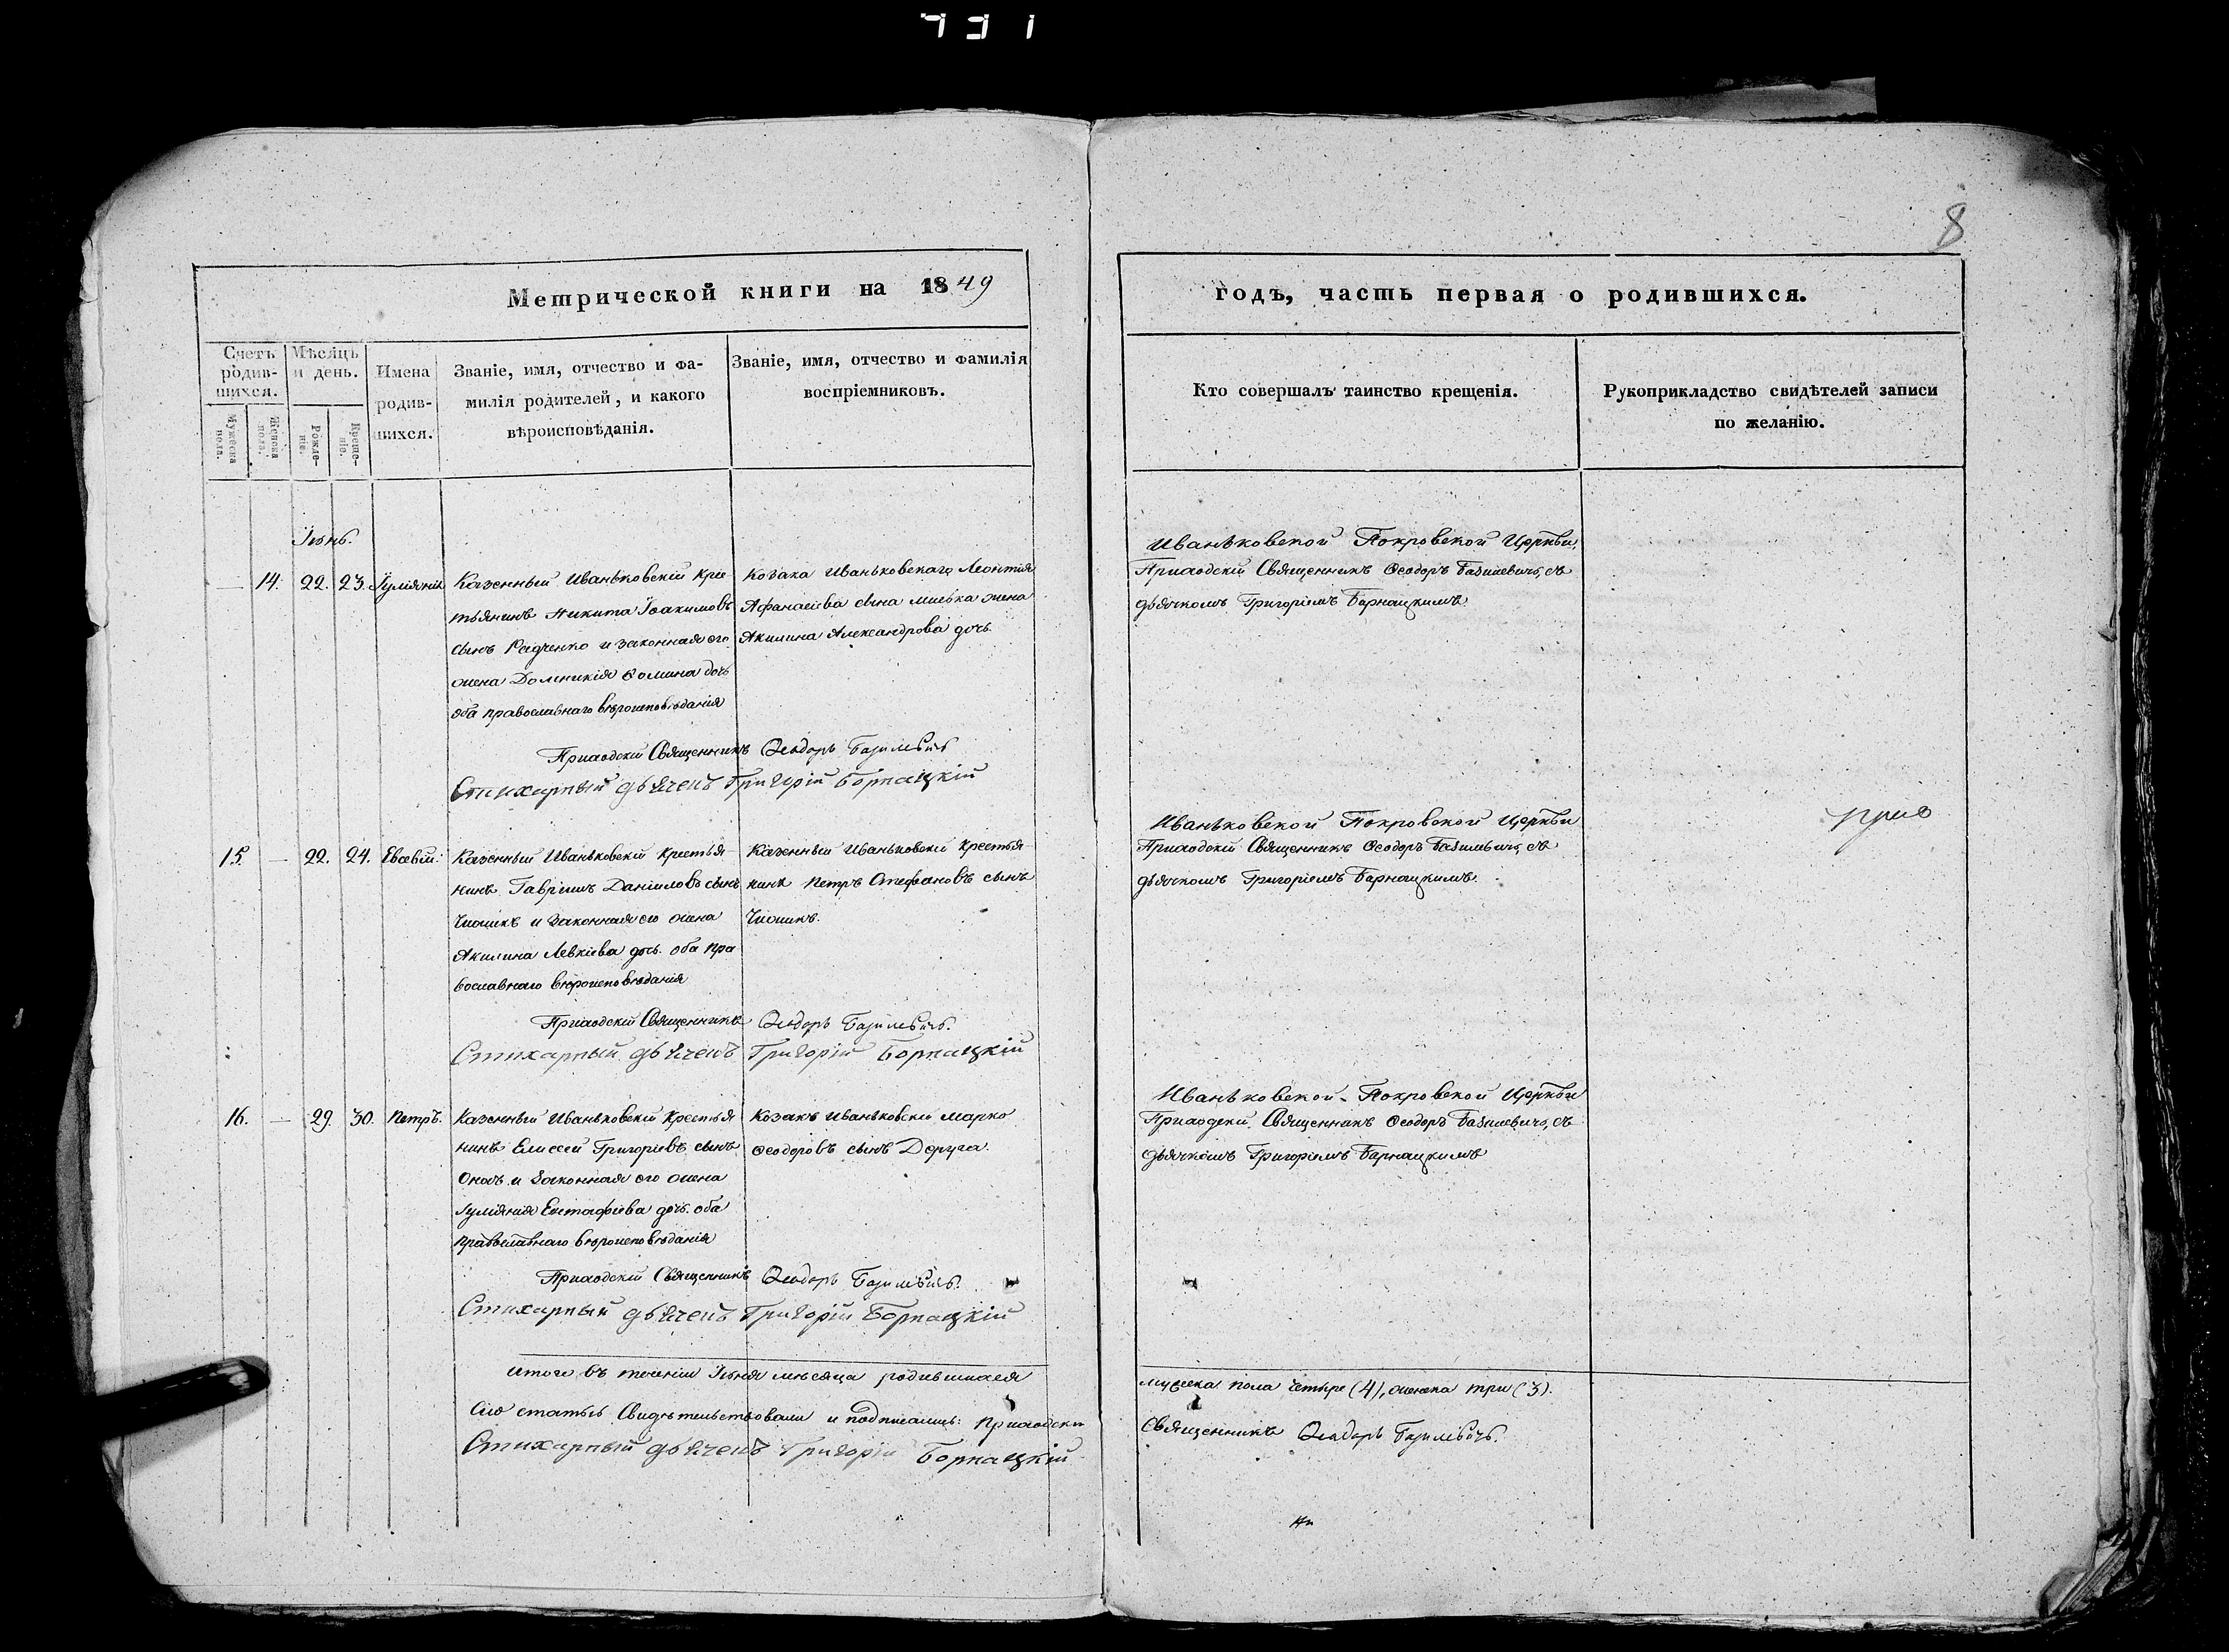 731
8
Метрической книги на 1849
годъ, часть первая о родившихся.
Счетъ родив-шихся.
Мужеска пола.
Женска пола.
Мѣсяцъ и день.
Рожде-ніе.
Креще-ніе.
Имена родив-шихся.
Званіе, имя, отчество и фа-
милія родителей, и какого
вѣроисповѣданія.
Званіе, имя, отчество и фамилія
воспріемниковъ.
Кто совершалъ таинство крещенія.
Рукоприкладство свидѣтелей записи
по желанію.
Іюнь.
— 14. 22. 23. Іуліянія
Казенный Иваньковскій крес
тьянинъ Никита Іоакимовъ
сынъ Радченко и законная его
жена Домникія Фомина дочь
оба православнаго вѣроисповѣданія
Козака Иваньковскаго Леонтія
Афанасіева сына жена
Акилина Александрова дочь.
Иваньковской Покровской Церкви,
Приходскій Священникъ Ѳеодоръ Базилевичъ, съ
дьячкомъ Григоріемъ Барнацкимъ.
Приходскій Священникъ Ѳеодоръ Базилевичъ
Стихарный дьячекъ Григорій Борнацкій
15. — 22. 24. Евсевій.
Казенный Иваньковскій крестья
нинъ Гавріилъ Даніиловъ сынъ
Чижикъ и законная его жена
Акилина Левкіева дочь. оба пра
вославнаго вѣроисповѣданія
Казенный Иваньковскій крестья
нинъ Петръ Стефановъ сынъ
Чижикъ.
Иваньковской Покровской Церкви
Приходскій Священникъ Ѳеодоръ Базилевичъ, съ
дьячкомъ Григоріемъ Барнацкимъ.
Приходскій Священникъ Ѳеодоръ Базилевичъ.
Стихарный дьячекъ Григорій Борнацкій
16. — 29. 30. Петръ.
Казенный Иваньковскій крестья
нинъ Елисей Григоріевъ сынъ
и законная его жена
Іуліянія Евстафіева дочь. оба
православнаго вѣроисповѣданія
Козакъ Иваньковскій Марко
Ѳеодоровъ сынъ Деруга.
Иваньковской Покровской Церкви
Приходскій Священникъ Ѳеодоръ Базилевичъ, съ
дьячкомъ Григоріемъ Барнацкимъ
Приходскій Священникъ Ѳеодоръ Базилевичъ.
Стихарный дьячекъ Григорій Борнацкій
Итого въ теченіи Іюня мѣсяца родившихся
мужска пола четыре (4), женска три (3).
Сію статью Свидѣтельствовали и подписались: Приходскій
Священникъ Ѳеодоръ Базилевичъ.
Стихарный дьячекъ Григорій Борнацкій